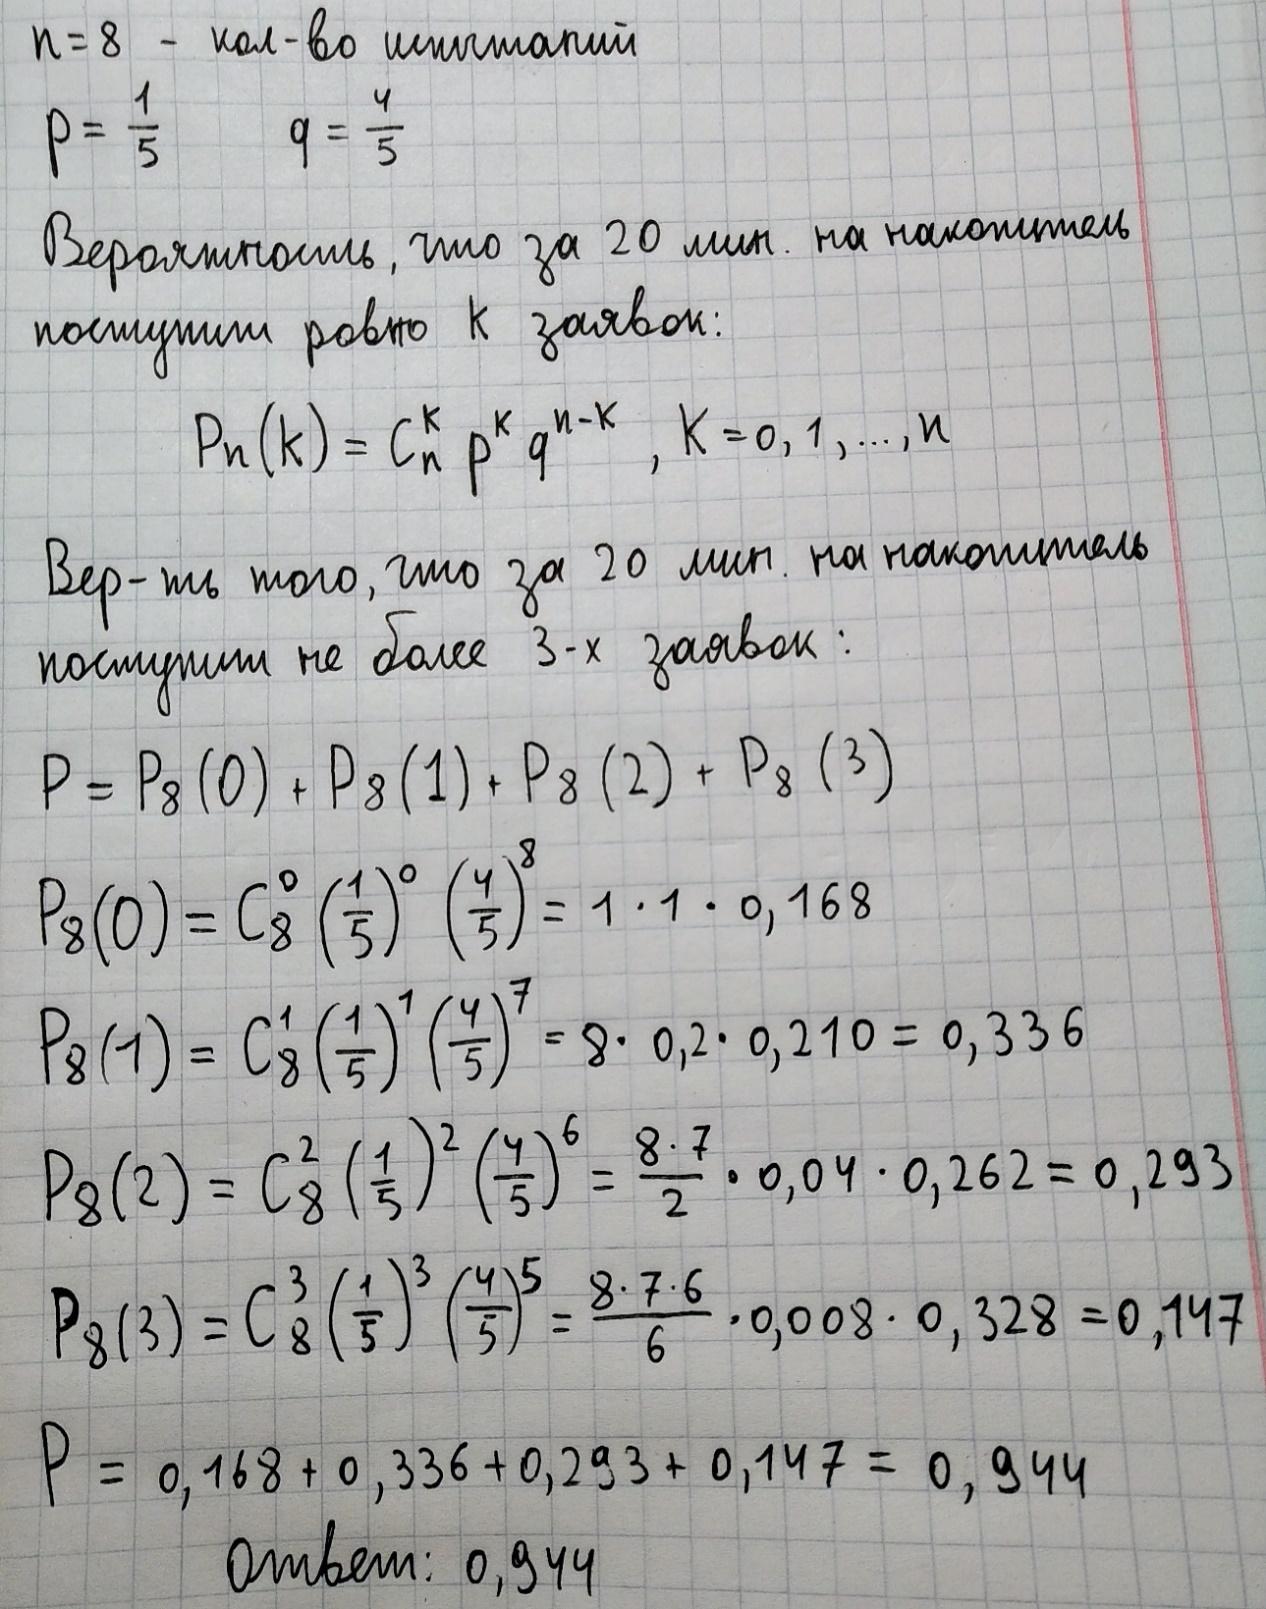 n = 8 - кол-во испытаний
p = 1/5 q = 4/5
Вероятность, что за 20 мин. на накопитель
поступит ровно k заявок:
Pn(k) = C_n^k p^k q^{n-k}, k = 0, 1, ..., n
Вер-ть того, что за 20 мин. на накопитель
поступит не более 3-х заявок:
P = P8(0) + P8(1) + P8(2) + P8(3)
P8(0) = C_8^0 (1/5)^0 (4/5)^8 = 1 · 1 · 0,168
P8(1) = C_8^1 (1/5)^1 (4/5)^7 = 8 · 0,2 · 0,210 = 0,336
P8(2) = C_8^2 (1/5)^2 (4/5)^6 = 8·7/2 · 0,04 · 0,262 = 0,293
P8(3) = C_8^3 (1/5)^3 (4/5)^5 = 8·7·6/6 · 0,008 · 0,328 = 0,147
P = 0,168 + 0,336 + 0,293 + 0,147 = 0,944
Ответ: 0,944